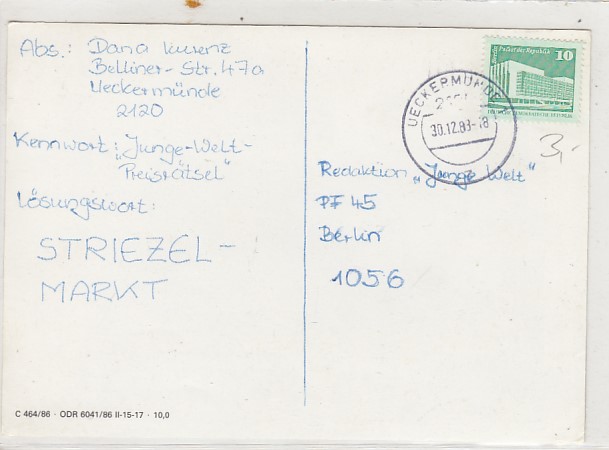 Abs.: Dana Kurenz
Belliner-Str. 47a
Ueckermünde
2120
Kennwort: „Junge-Welt-
Preisrätsel"
Lösungswort:
STRIEZEL-
MARKT
C 464/86 · ODR 6041/86 II-15-17 · 10,0
Berlin Palast der Republik 10
UECKERMÜNDE 1
30.12.88-18
3,-
Redaktion „Junge Welt"
PF 45
Berlin
1056